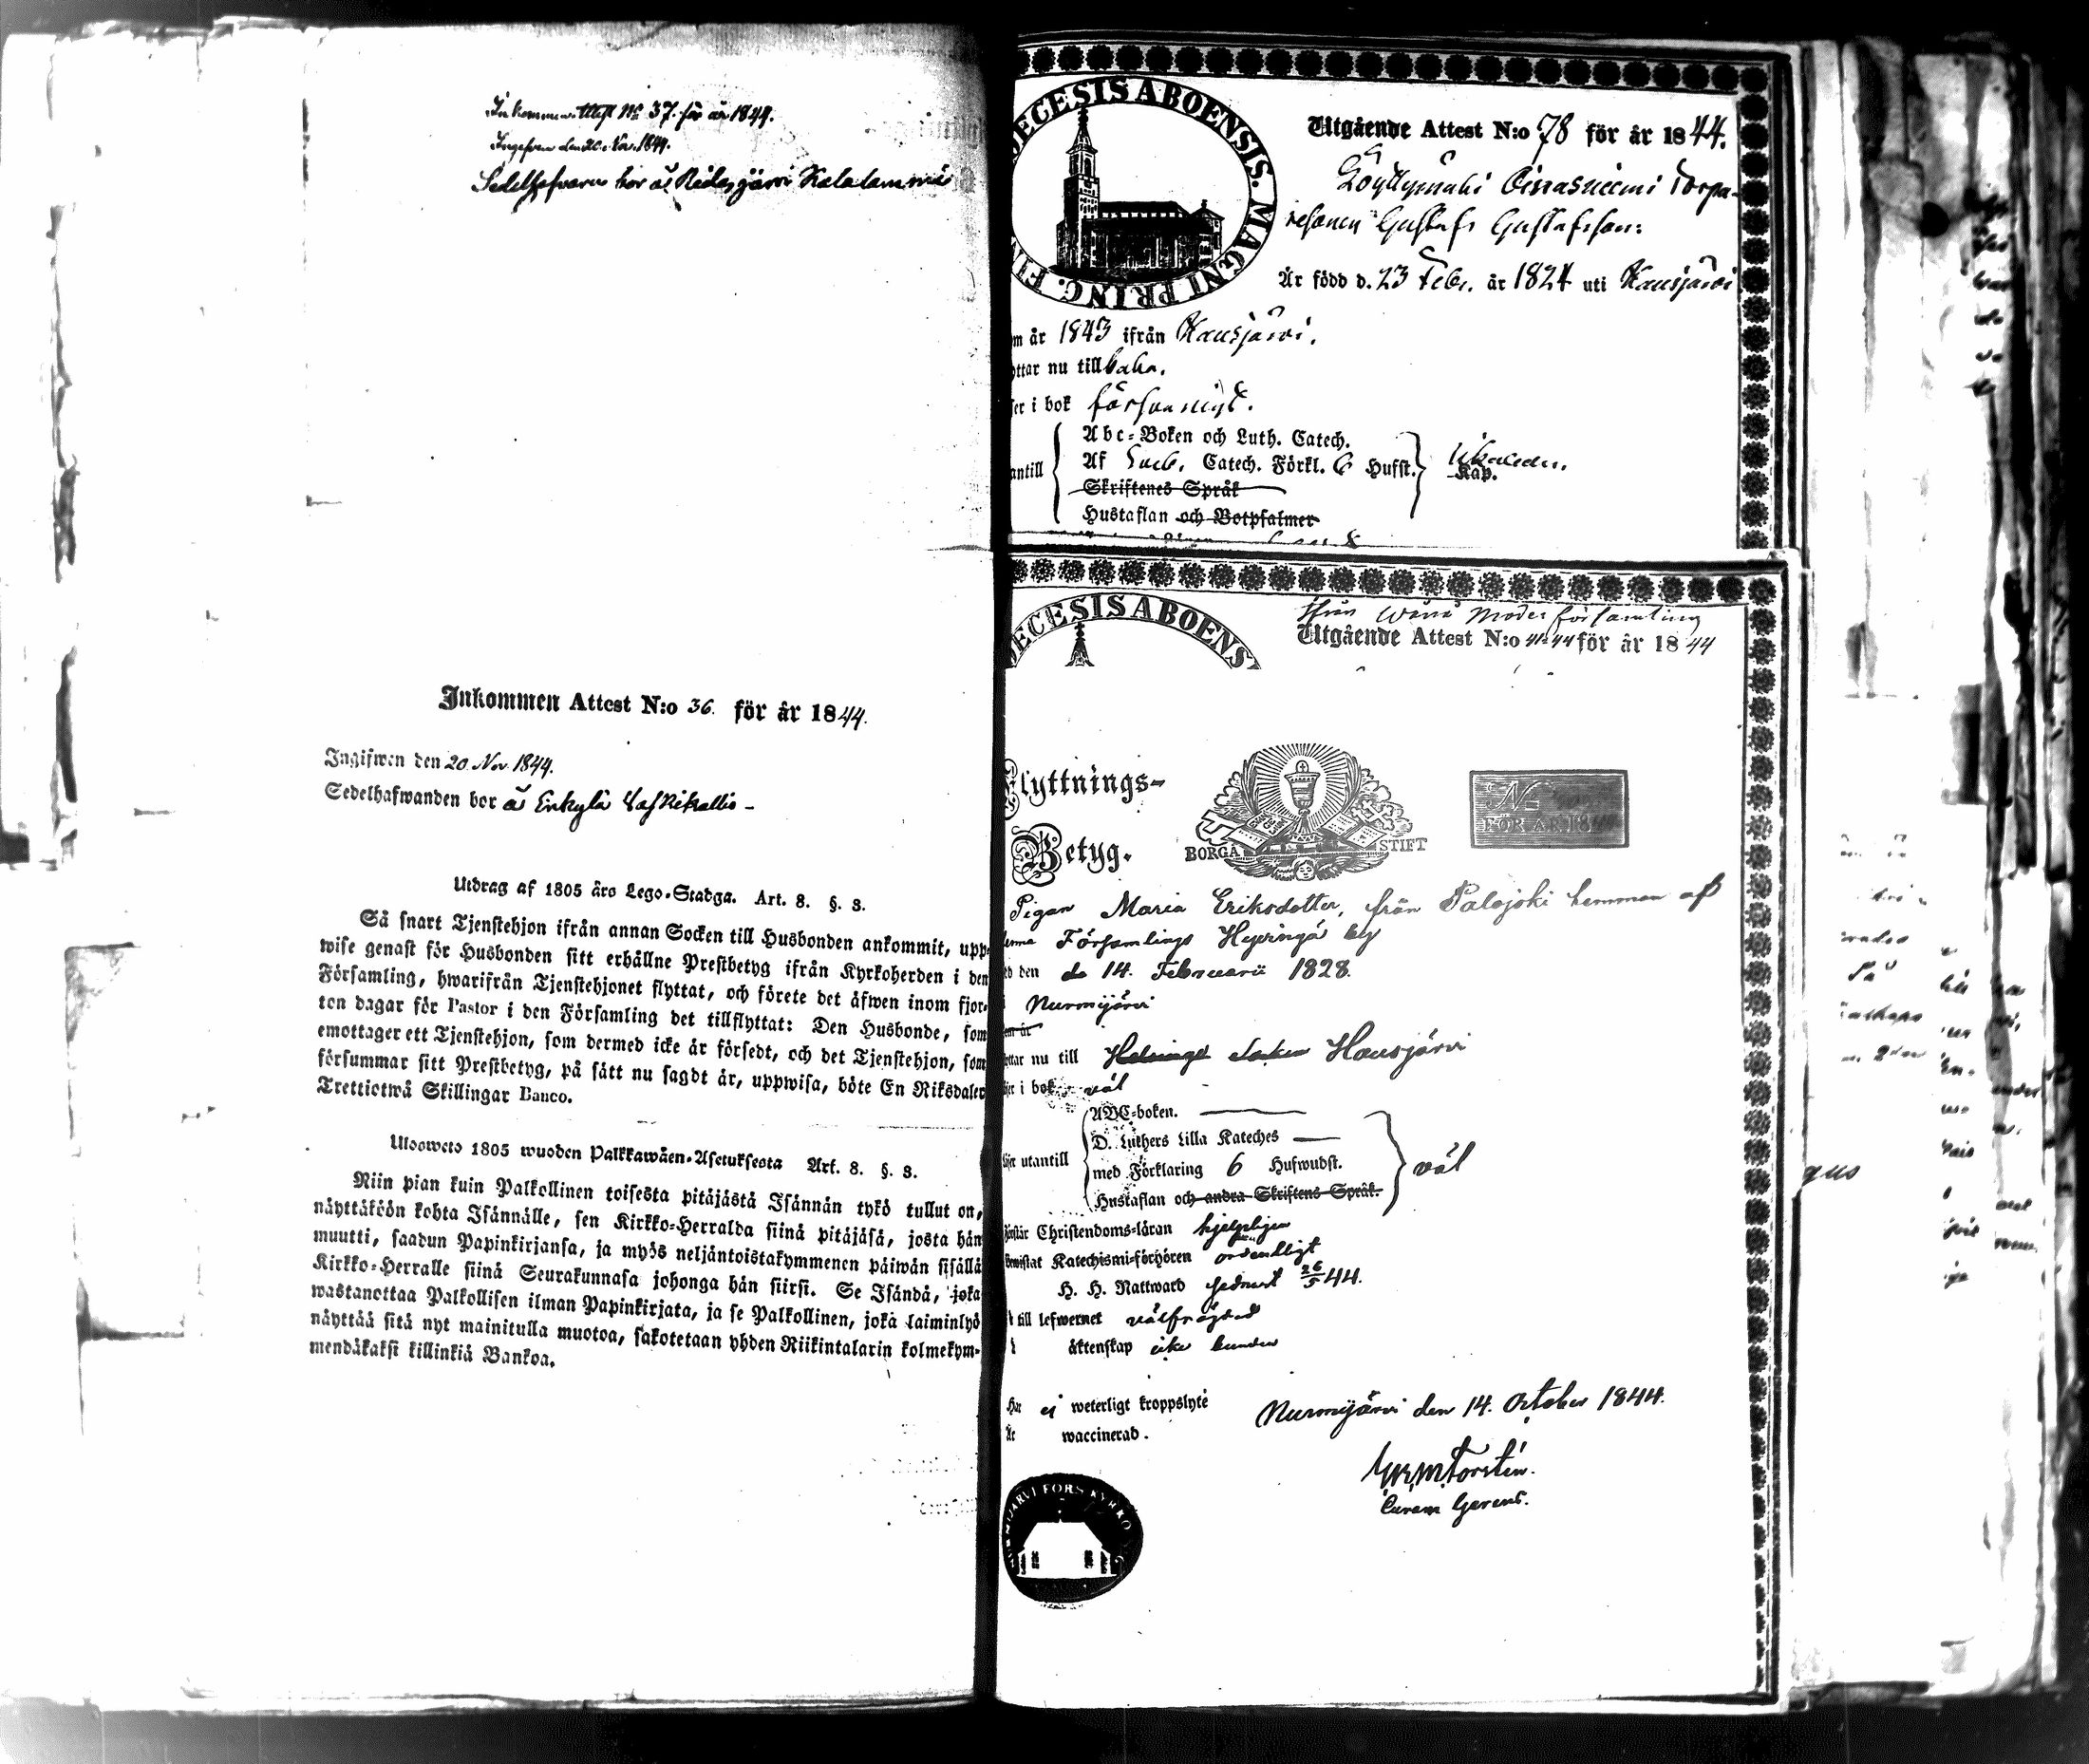 Inkommen Attest No 37. för år 1844.
Ingifven den 20. Nov. 1844.
Sedelhafvaren bor å Ridasjärvi Kalalammi
Inkommen Attest N:o 36. för år 1844.
Ingifwen den 20 Nov. 1844.
Sedelhafwanden bor å Erkylä
Utdrag af 1805 åro Lego-Stadga. Art. 8. §. 8.
Så snart Tjenstehjon ifrån annan Socken till Husbonden ankommit, upp-
wise genast för Husbonden sitt erhållne Prestbetyg ifrån Kyrkoherden i den
Församling, hwarifrån Tjenstehjonet flyttat, och förete det äfwen inom fjor-
ton dagar för Pastor i den Församling det tillflyttat: Den Husbonde, som
emottager ett Tjenstehjon, som dermed icke är försedt, och det Tjenstehjon, som
försummar sitt Prestbetyg, på sätt nu sagdt är, uppwisa, böte En Riksdaler
Trettiotwå Skillingar Banco.
Ulosweto 1805 wuoden Palkkawäen-Asetuksesta Art. 8. §. 8.
Niin pian kuin Palkollinen toisesta pitäjästä Isännän tykö tullut on,
näyttäköön kohta Isännälle, sen Kirkko-Herralda siinä pitäjäsä, josta hän
muutti, saadun Papinkirjansa, ja myös neljäntoistakymmenen päiwän sisällä
Kirkko-Herralle siinä Seurakunnasa johonga hän siirsi. Se Isändä, joka
wastanottaa Palkollisen ilman Papinkirjata, ja se Palkollinen, joka laiminlyö
näyttää sitä nyt mainitulla muotoa, sakotetaan yhden Riikintalarin kolmekym-
mendäkaksi killinkiä Bankoa.
DECESIS ABOENSIS. MAGNI PRINC. FIN
Utgående Attest N:o 78 för år 1844.
Torpa-
resonen Gustaf Gustafsson:
Är född d. 23 Febr. år 1824 uti Hausjärvi
m år 1843 ifrån Hausjärvi.
ttar nu tillbaka.
ser i bok försvarligt.
Abc-Boken och Luth. Catech.
Af Luth. Catech. Förkl. 6 Hufst. Kap.
antill
Skriftenes Språk
Hustaflan och Botpsalmer
DECESIS ABOENS
Ifrån Wånå Moderförsamling
Utgående Attest N:o 41-44 för år 1844
Flyttnings-
Betyg.
BORGÅ STIFT
N
FÖR ÅR 18
Pigan Maria Eriksdotter, från Palojoki hemman af
denna Församlings Hyvingå by
den 14. Februarii 1828
i Nurmijärvi
om år
flyttar nu till Helsinge Socken Hausjärvi
ser i bok väl
ABC-boken.
D. Luthers Lilla Kateches
med Förklaring 6 Hufwudst.
utantill
väl
Hustaflan och andra Skriftens Språk.
förstår Christendoms-läran hjelpligen
bewistat Katechismi-förhören ordentligt
H. H. Nattward sednast 26/5 44.
till lefwernet välfräjdad
äktenskap icke bunden
Har ej weterligt kroppslyte
Är waccinerad.
Nurmijärvi den 14. October 1844.
Curam Gerens.
NURMIJÄRVI FÖRS. KYRKO